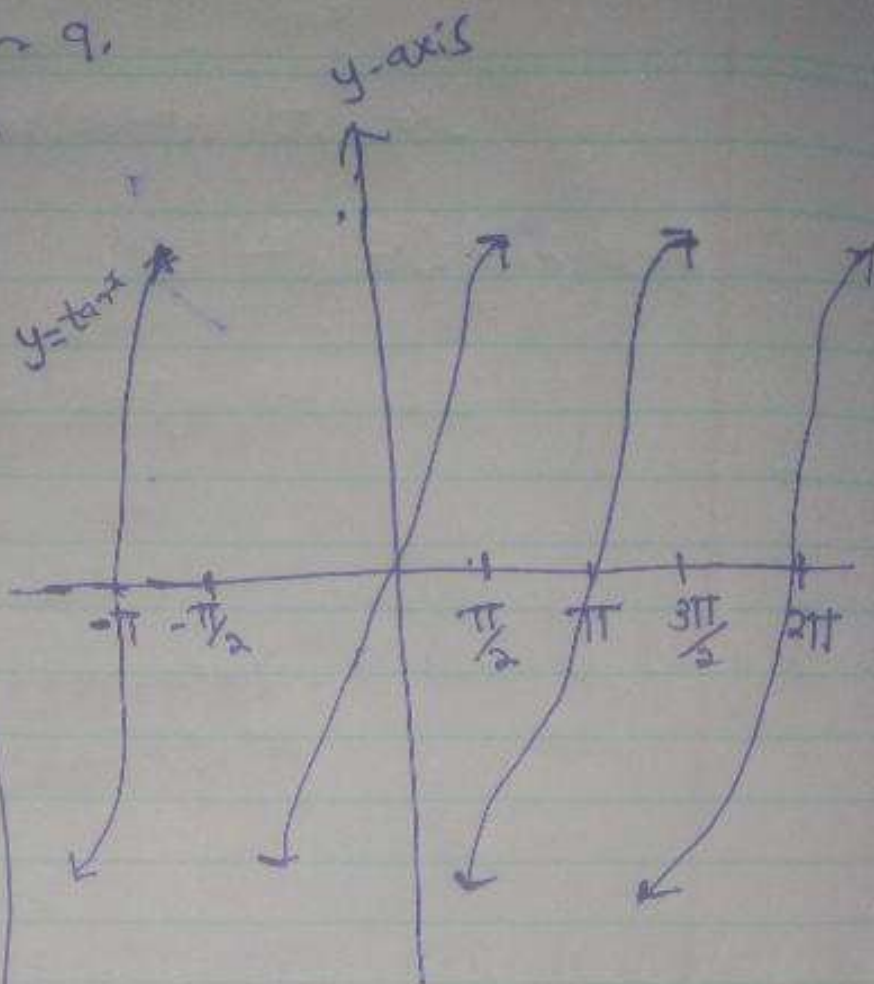 9.
y-axis
y=tanx
-π
-π/2
π/2
π
3π/2
2π